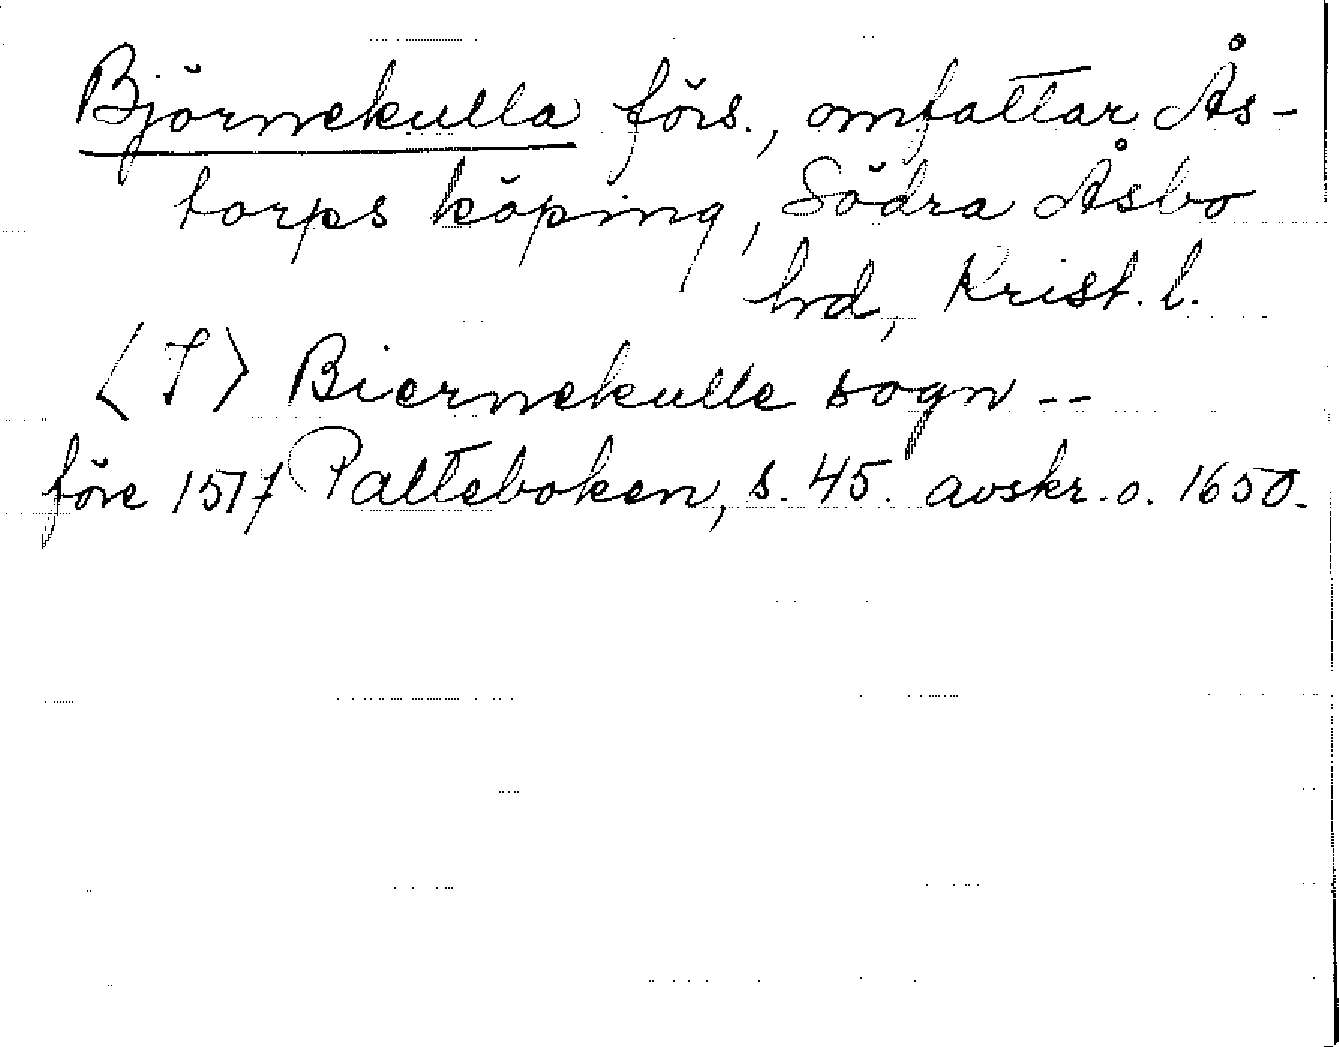 Björnekulla förs., omfattar Ås-
torps köping, Södra Åsbo
hrd, Krist. l.
〈I〉 Biernekulle sogn --
före 1517 Palteboken, s. 45. avskr. o. 1650.